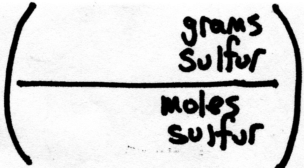 grams
sulfur
moles
sulfur